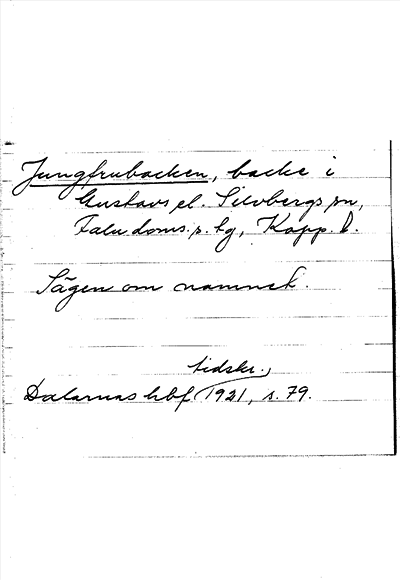 Jungfrubacken, backe i
Gustavs el. Silvbergs sn,
Falu doms. tg, Kopp. l.
Sägen om namnet.
tidskr.,
Dalarnas hbf 1921, s. 79.